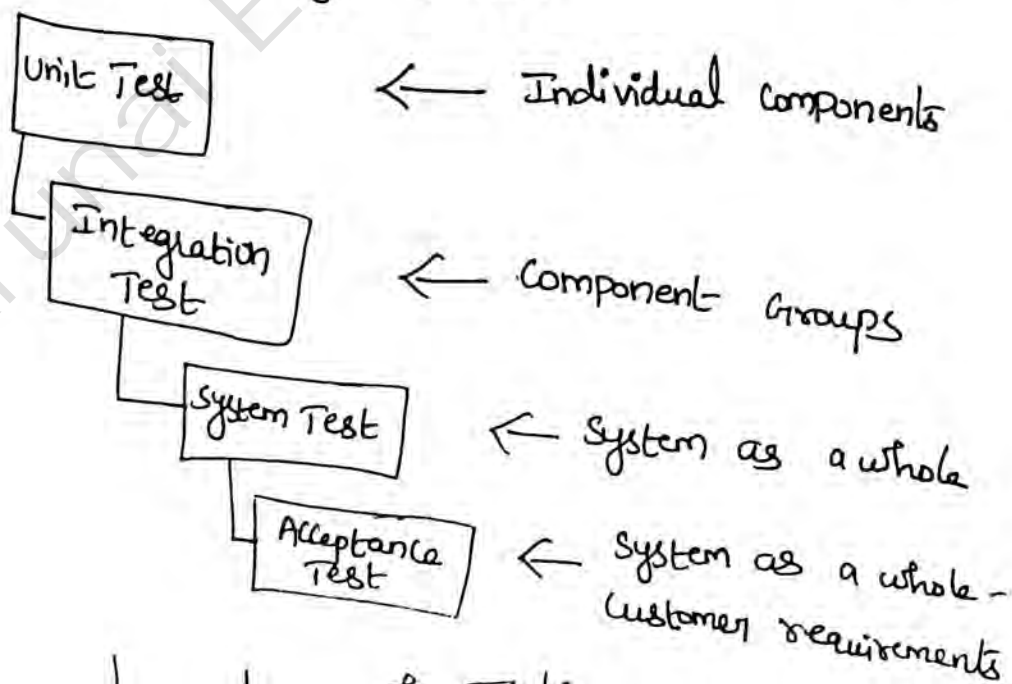 Unit Test
← Individual components
Integration
Test
← Component Groups
System Test
← System as a whole
Acceptance
Test
← System as a whole -
customer requirements